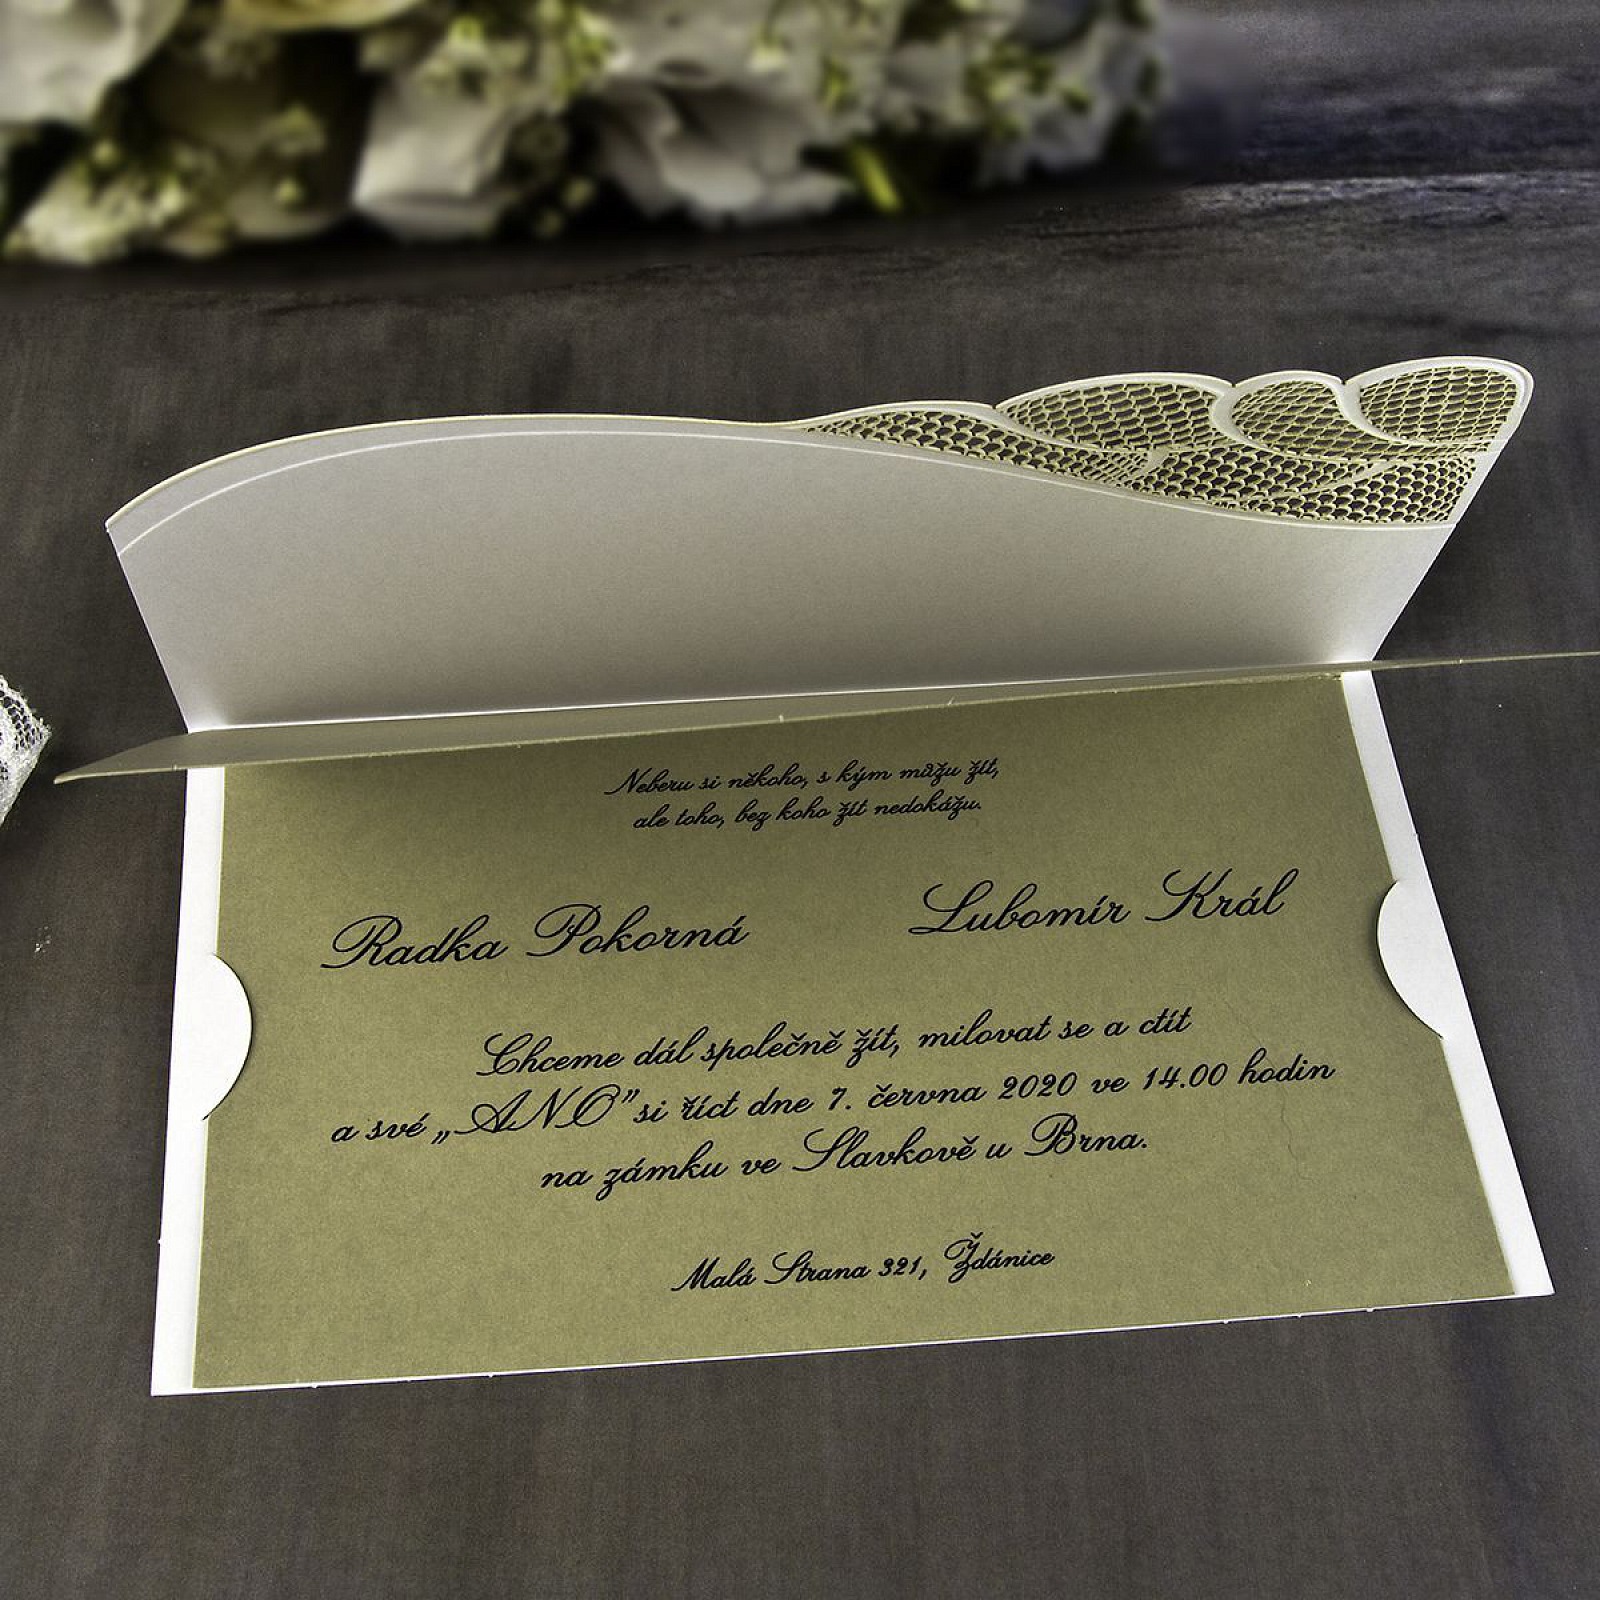 Neberu si někoho, s kým můžu žít,
ale toho, bez koho žít nedokážu.
Radka Pokorná
Lubomír Král
Chceme dál společně žít, milovat se a ctít
a své „ANO” si říct dne 7. června 2020 ve 14.00 hodin
na zámku ve Slavkově u Brna.
Malá Strana 321, Ždánice